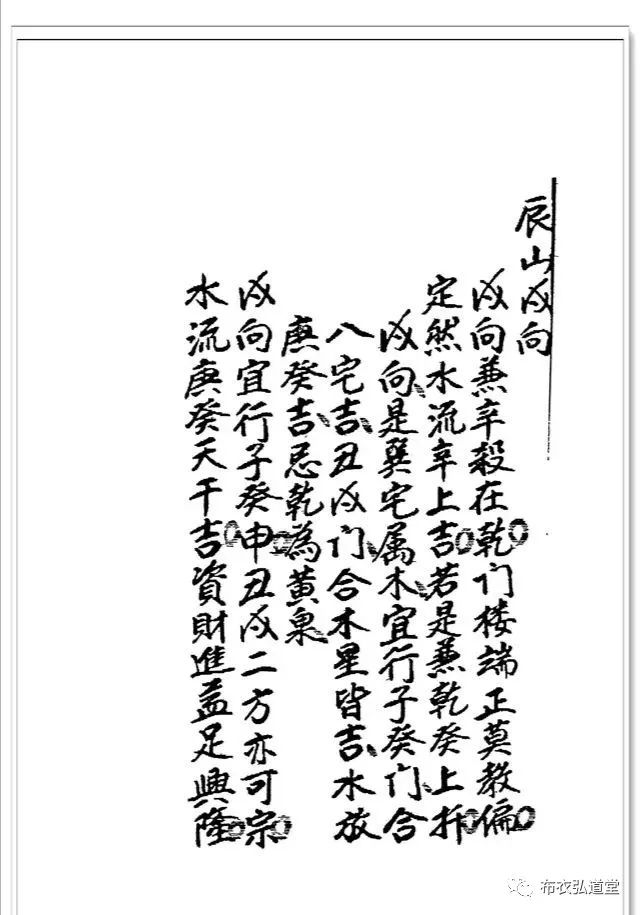 辰山戌向
戌向兼辛殺在乾门楼端正莫教偏
定然水流辛上吉若是兼乾癸上折
戌向是巽宅属木宜行子癸门合
八宅吉丑戌门合木星皆吉水放
庚癸吉忌乾為黄泉
戌向宜行子癸申丑戌二方亦可宗
水流庚癸天干吉資財進益足興隆
布衣弘道堂